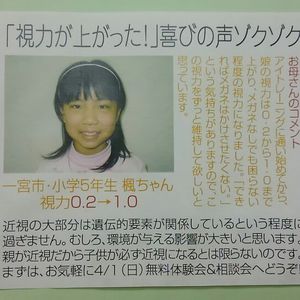 「視力が上がった!」喜びの声ゾクゾク
お母さんのコメント
アイトレーニングに通い始めてから、
娘の視力は0.2から1.0まで
上がり、メガネなしでも困らない
程度の視力になりました。「でき
ればメガネはかけさせたくない。」
という気持ちがありますので、こ
の視力をずっと維持して欲しいと
思っています。
一宮市・小学5年生 楓ちゃん
視力0.2→1.0
近視の大部分は遺伝的要素が関係しているという程度に
過ぎません。むしろ、環境が与える影響が大きいと思います。
親が近視だから子供が必ず近視になるとは限らないのです。
まずは、お気軽に4/1(日)無料体験会&相談会へどうぞ